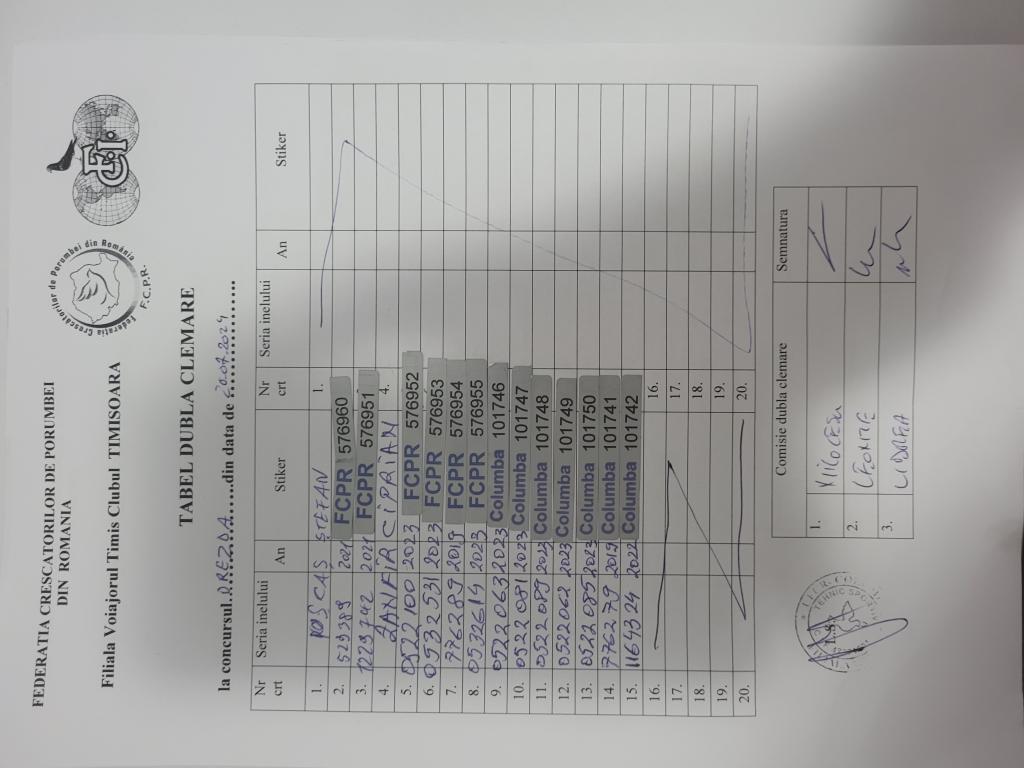 FEDERATIA CRESCATORILOR DE PORUMBEI
DIN ROMANIA
Filiala Voiajorul Timis Clubul TIMISOARA
Federația Crescătorilor de Porumbei din România
F.C.P.R.
TABEL DUBLA CLEMARE
la concursul din data de 20.07.2024
Nr crt Seria inelului An Stiker Nr crt Seria inelului An Stiker
1. ȘTEFAN 1.
2. 529289 2021 FCPR 576960
3. 2021 FCPR 576951
4. CIPRIAN 4.
5. 0522100 2023 FCPR 576952
6. 0532531 2023 FCPR 576953
7. 776289 2019 FCPR 576954
8. 0532614 2023 FCPR 576955
9. 0522063 2023 Columba 101746
10. 0522081 2023 Columba 101747
11. 0522089 2023 Columba 101748
12. 0522062 2023 Columba 101749
13. 0522085 2023 Columba 101750
14. 776279 2019 Columba 101741
15. 1164324 2022 Columba 101742
16. 16.
17. 17.
18. 18.
19. 19.
20. 20.
Comisie dubla clemare Semnatura
1.
2.
3.